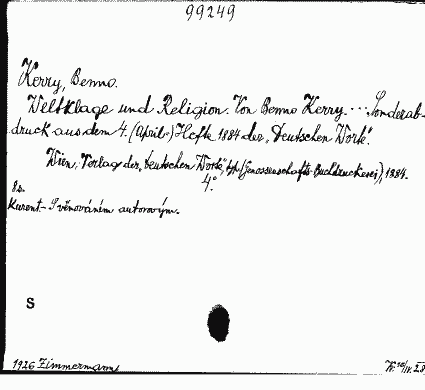 99249
Kerry, Benno.
Weltklage und Religion. Von Benno Kerry. ... Sonderab-
druck aus dem 4. (April-) Hefte 1884 der „Deutschen Worte".
Wien, Verlag der „Deutschen Worte", (Genossenschafts-Buchdruckerei), 1884.
4°.
8 s.
Kurent. - S věnováním autorovým.
S
1926 Zimmermann